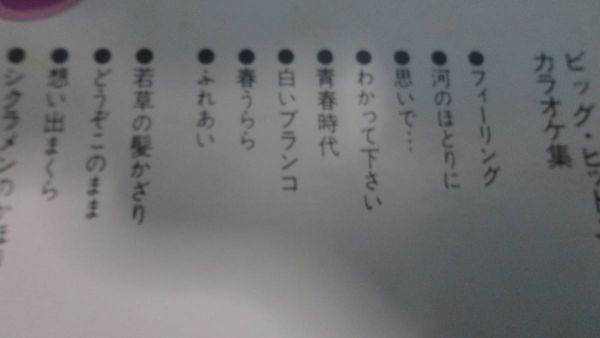 ビッグ・ヒット
カラオケ集
●フィーリング
●河のほとりに
●思いで…
●わかって下さい
●青春時代
●白いブランコ
●春うらら
●ふれあい
●若草の髪かざり
●どうぞこのまま
●想い出まくら
●シクラメンのかほり